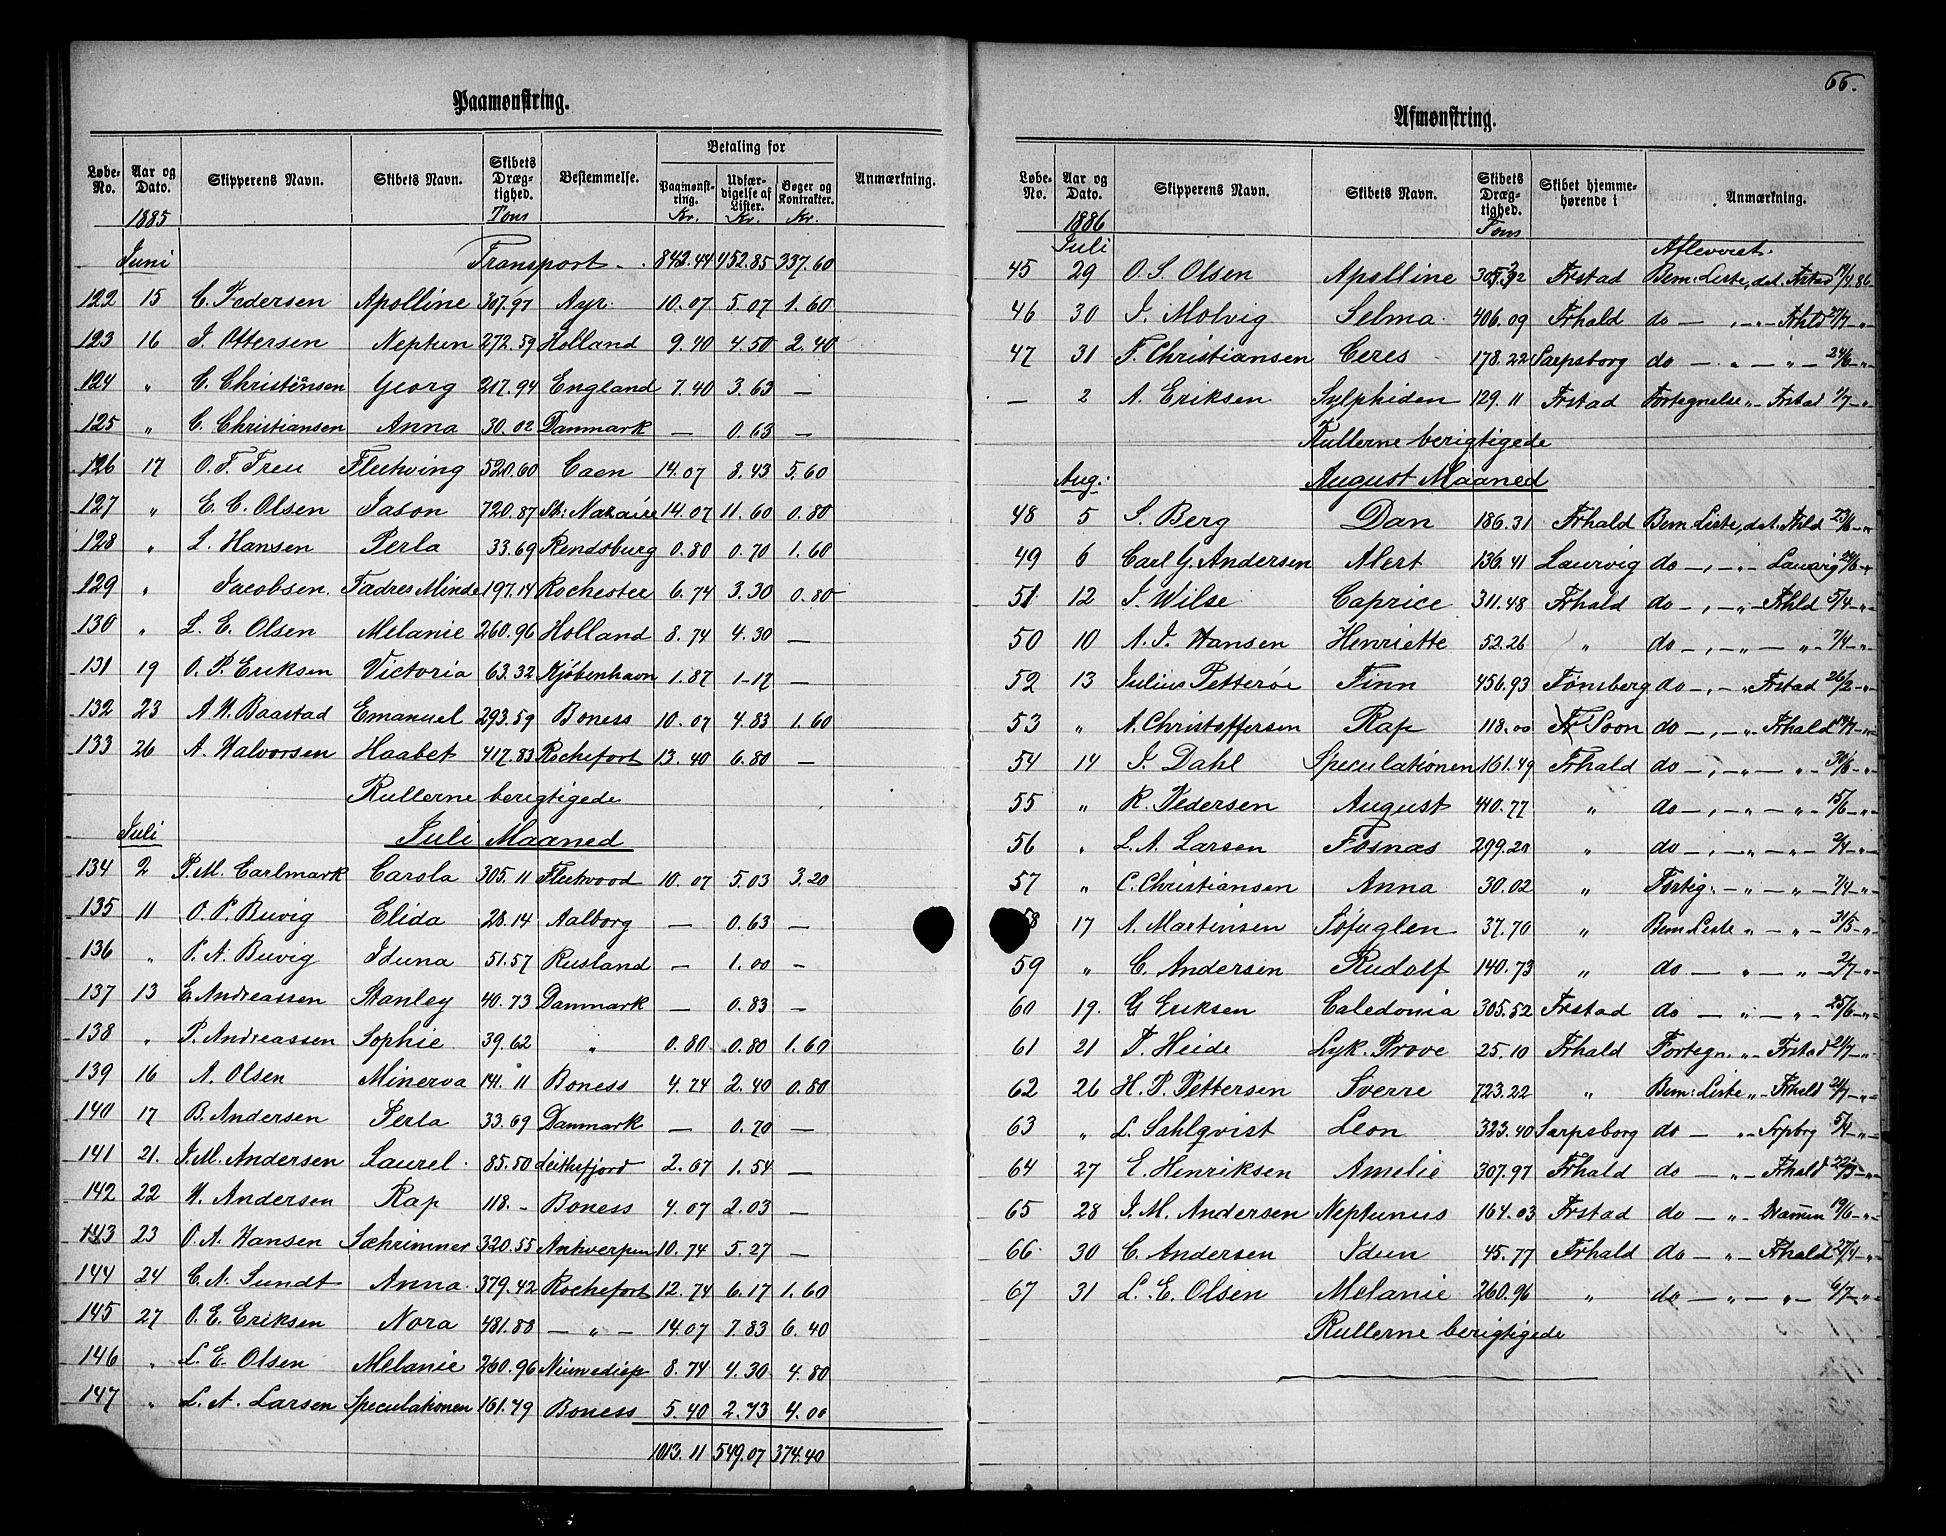 Paamønstring.
Løbe-No. Aar og Dato. Skipperens Navn. Skibets Navn. Skibets Drægtighed. Bestemmelse. Betaling for Paamønstring. Udfærdigelse af Lister. Bøger og Kontrakter. Anmærkning.
1885 Tons Kr. Kr. Kr.
Juni Transport 843.44 452.85 337.60
122 15 C. Pedersen Apolline 307.97 Ayr 10.07 5.07 1.60
123 16 J. Ottersen Neptun 272.59 Holland 9.40 4.50 2.40
124 " C. Christensen Georg 217.94 England 7.40 3.63 —
125 " C. Christiansen Anna 30.02 Danmark — 0.63 —
126 17 O. F. Treu Fleetwing 520.60 Caen 14.07 8.43 5.60
127 " E. C. Olsen Jason 720.87 St: Nazaire 14.07 11.60 0.80
128 " L. Hansen Perla 33.69 Rendsburg 0.80 0.70 1.60
129 " Jacobsen. Fadres Minde 197.14 Rochester 6.74 3.30 0.80
130 " L. E. Olsen Melanie 260.96 Holland 8.74 4.30 —
131 19 O. P. Eriksen Victoria 63.32 Kjøbenhavn 1.87 1.17
132 23 A. H. Baastad Emanuel 293.59 Boness 10.07 4.83 1.60
133 26 A. Halvorsen Haabet 417.83 Rochefort 13.40 6.80 —
Rullerne berigtigede
Juli Juli Maaned
134 2 P. M. Carlmark Carsla 305.11 Fleetwood 10.07 5.03 3.20
135 11 O. P. Buvig Elida 28.14 Aalborg — 0.63 —
136 " P. A. Buvig Iduna 51.57 Rusland — 1.00 —
137 13 E. Andreassen Stanley 40.73 Danmark — 0.83 —
138 " P. Andreassen Sophie 39.62 " 0.80 0.80 1.60
139 16 A. Olsen Minerva 141.11 Boness 4.74 2.40 0.80
140 17 B. Andersen Perla 33.69 Danmark — 0.70 —
141 21. J. M. Andersen Laurel. 85.50 Leithsfjord 2.67 1.54 —
142 22 H. Andersen Rap 118.- Boness 4.07 2.03 —
143 23 O. A. Hansen Sæhrimner 320.55 Antwerpen 10.74 5.27 —
144 24 C. A. Sundt Anna. 379.42 Rochefort 12.74 6.17 1.60
145 27 O. E. Eriksen Nora 481.88 — " — 14.07 7.83 6.40
146 " L. E. Olsen Melanie 260.96 Nieuwediep 8.74 4.30 4.80
147 " L. A. Larsen Speculationen 161.49 Boness 5.40 2.73 4.00
1013.11 549.07 374.40
66.
Afmønstring.
Løbe-No. Aar og Dato. Skipperens Navn. Skibets Navn. Skibets Drægtighed. Skibet hjemmehørende i Anmærkning.
1886 Tons
Juli Afleveret.
45 29 O. S. Olsen Apolline Frstad Bem: Liste, dat. Frstad 86
46 30 J. Molvig Selma. 406.09 Frhald do — " — Frhld 27/7 "
47 31 F. Christiansen Ceres 178.22 Sarpsborg do — " — " — 24/6 - "
— 2 A. Eriksen Sylphiden 129.11 Frstad Fortegnelse " Frstad 2/7 - "
Rullerne berigtigede
Aug: August Maaned
48 5 S. Berg Dan 186.31 Frhald Bem: Liste, dat. Frhld 23/6 - "
49 6 Carl G. Andersen Alert 136.41 Laurvig do — " — Laurvig 24/6 - "
51 12 J. Wilse Caprice 311.48 Frhald do — " — Frhld 5/4 - "
50 10 A. J. Hansen Henriette 52.26 " do — " — " 7/4 - "
52 13 Julius Petterøe Finn 456.93 Tønsberg do — " Frstad 26/2 - "
53 " A. Christoffersen Rap 118.00 Soon do — " Frhald "
54 14 J. Dahl Speculationen 161.49 Frhald do — " — " 30/6 - "
55 " K. Pedersen August 440.77 " do — " — " 15/6 - "
56 " L. A. Larsen Fosnæs 299.20 " do — " — " 2/4 - "
57 " C. Christiansen Anna 30.02 " Forteg: — " — " 7/4 - "
58 17 A. Martinsen Søfuglen 37.70 " Bem: Liste " — " 31/5 - "
59 " C. Andersen Rudolf 140.73 " do — " — " 2/7 - "
60 19. G. Eriksen Caledonia 305.52 Frstad do — " — " 25/6 - "
61 21 T. Heide Lyk. Prove 25.10 Frhald Fortegn. " Frstad 21/7 - "
62 26 H. P. Pettersen Sverre 723.22 " Bem: Liste " Frhald 24/7 - "
63 " L. Sahlqvist Leon 323.40 Sarpsborg do — " Srpbrg 5/4 - "
64 27 E. Henriksen Amelie 307.97 Frhald do — " Frhald 22/3 - "
65 28 J. M. Andersen Neptunus 164.03 Frstad do — " 19/6 - "
66. 30 C. Andersen Idun 45.77 Frhald do — " Frhald 27/4 - "
67 31 L. E. Olsen Melanie 260.96 " do — " — " 6/7 - "
Rullerne berigtigede